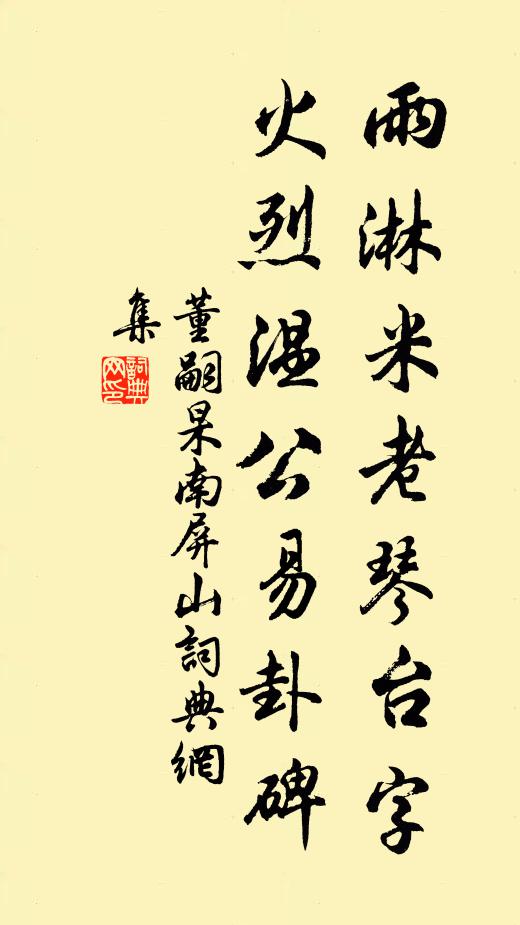 雨淋米老琴台字
火烈温公易卦碑
董嗣杲南屏山詞典網
集
詞典
网印